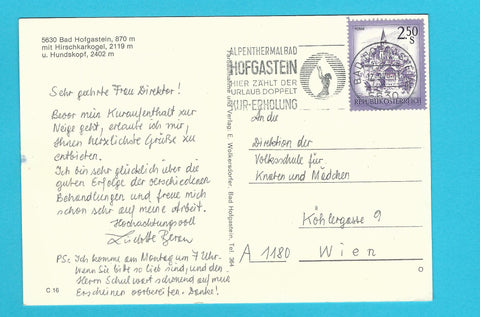 5630 Bad Hofgastein, 870 m
mit Hirschkarkogel, 2119 m
u. Hundskopf, 2402 m
Sehr geehrte Frau Direktor!
Bevor mein Kuraufenthalt zur
Neige geht, erlaube ich mir,
Ihnen herzlichste Grüße zu
entbieten.
Ich bin sehr glücklich über die
guten Erfolge der verschiedenen
Behandlungen und freue mich
schon sehr auf meine Arbeit.
Hochachtungsvoll
PS: Ich komme am Montag um 7 Uhr.
Wenn Sie bitte so lieb sind, und den
Herrn Schulwart schonend auf mein
Erscheinen vorbereiten. Danke!
C 16
und Verlag: E. Wolkersdorfer, Bad Hofgastein, Tel. 364
ALPENTHERMALBAD
HOFGASTEIN
HIER ZÄHLT DER
URLAUB DOPPELT
KUR-ERHOLUNG
2.50
S
REPUBLIK ÖSTERREICH
5630
An die
Direktion der
Volksschule für
Knaben und Mädchen
Köhlergasse 9
A 1180 Wien